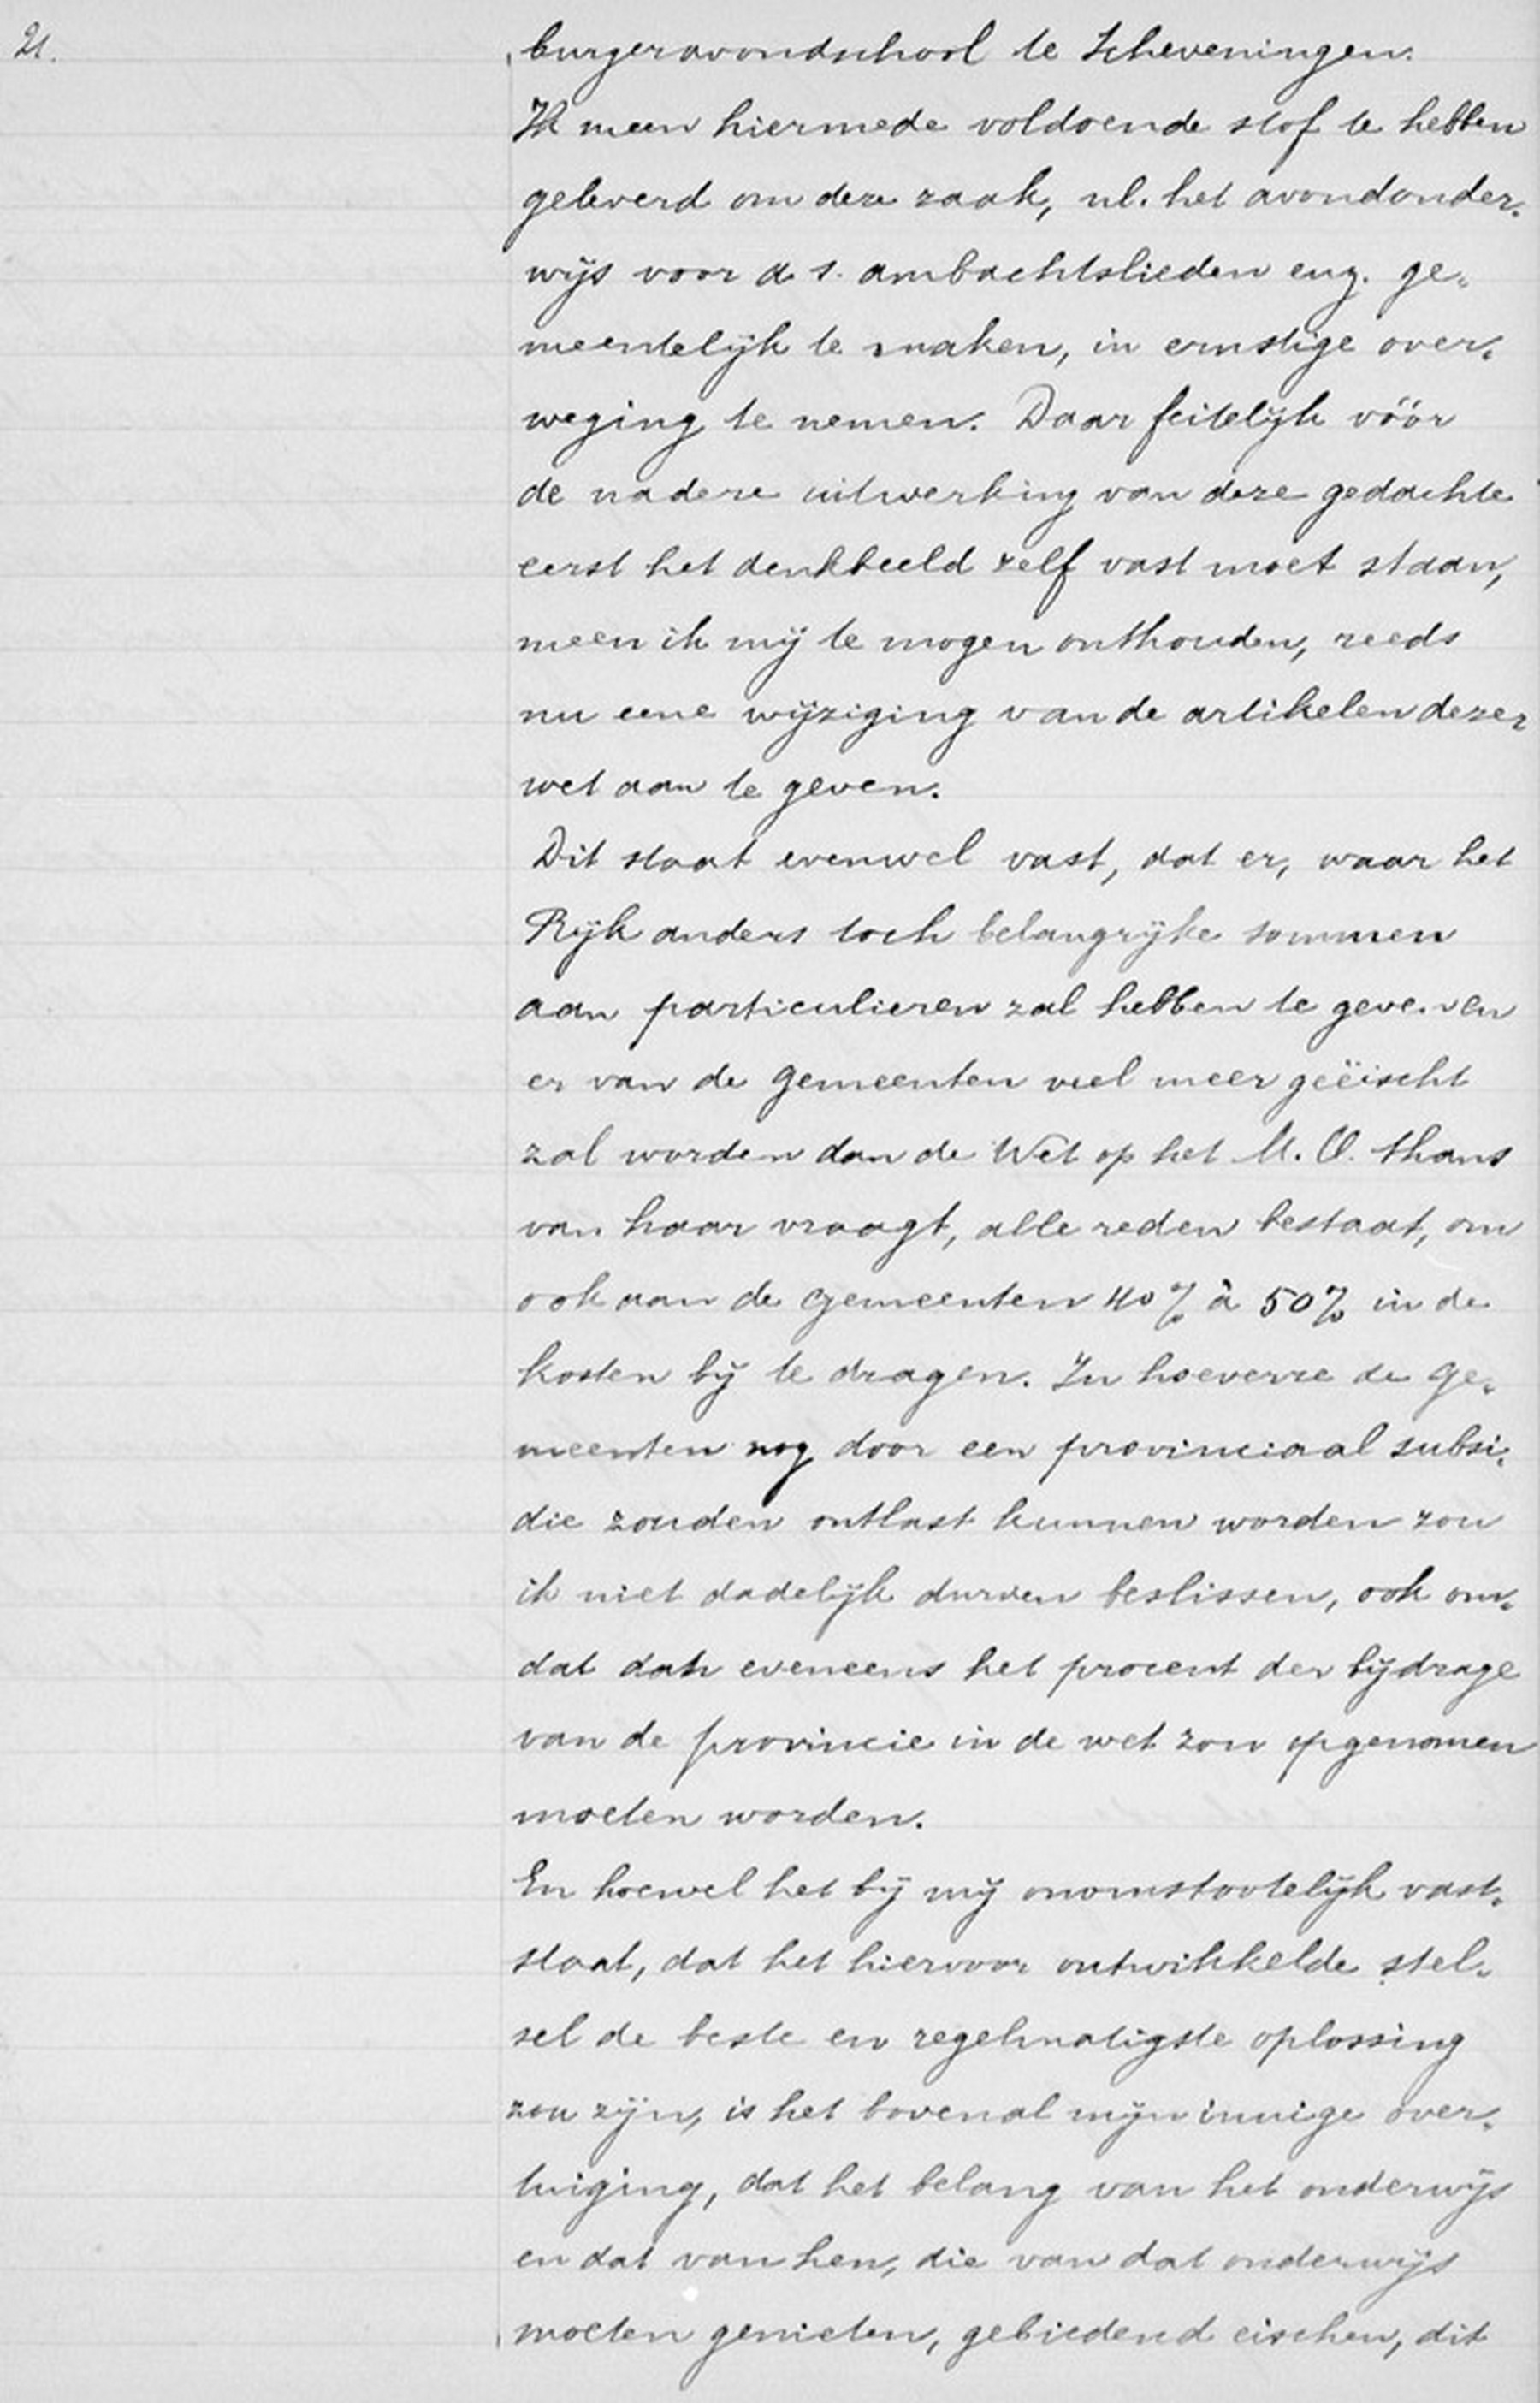 21.
burgeravondschool te Scheveningen.
Ik meen hiermede voldoende stof te hebben
geleverd om deze zaak, nl. het avondonder-
wijs voor a.s. ambachtslieden enz. ge-
meentelijk te maken, in ernstige over-
weging te nemen. Daar feitelijk vóór
de nadere uitwerking van deze gedachte
eerst het denkbeeld zelf vast moet staan,
meen ik mij te mogen onthouden, reeds
nu eene wijziging van de artikelen dezer
wet aan te geven.
Dit staat evenwel vast, dat er, waar het
Rijk anders toch belangrijke sommen
aan particulieren zal hebben te geven en
er van de gemeenten veel meer geëischt
zal worden dan de Wet op het M. O. thans
van haar vraagt, alle reden bestaat, om
ook aan de gemeenten 40% à 50% in de
kosten bij te dragen. In hoeverre de ge-
meenten nog door een provinciaal subsi-
die zouden ontlast kunnen worden zou
ik niet dadelijk durven beslissen, ook om-
dat dan eveneens het procent der bijdrage
van de provincie in de wet zou opgenomen
moeten worden.
En hoewel het bij mij onomstootelijk vast-
staat, dat het hiervoor ontwikkelde stel-
sel de beste en regelmatigste oplossing
zou zijn, is het bovenal mijn innige over-
tuiging, dat het belang van het onderwijs
en dat van hen, die van dat onderwijs
moeten genieten, gebiedend eischen, dit